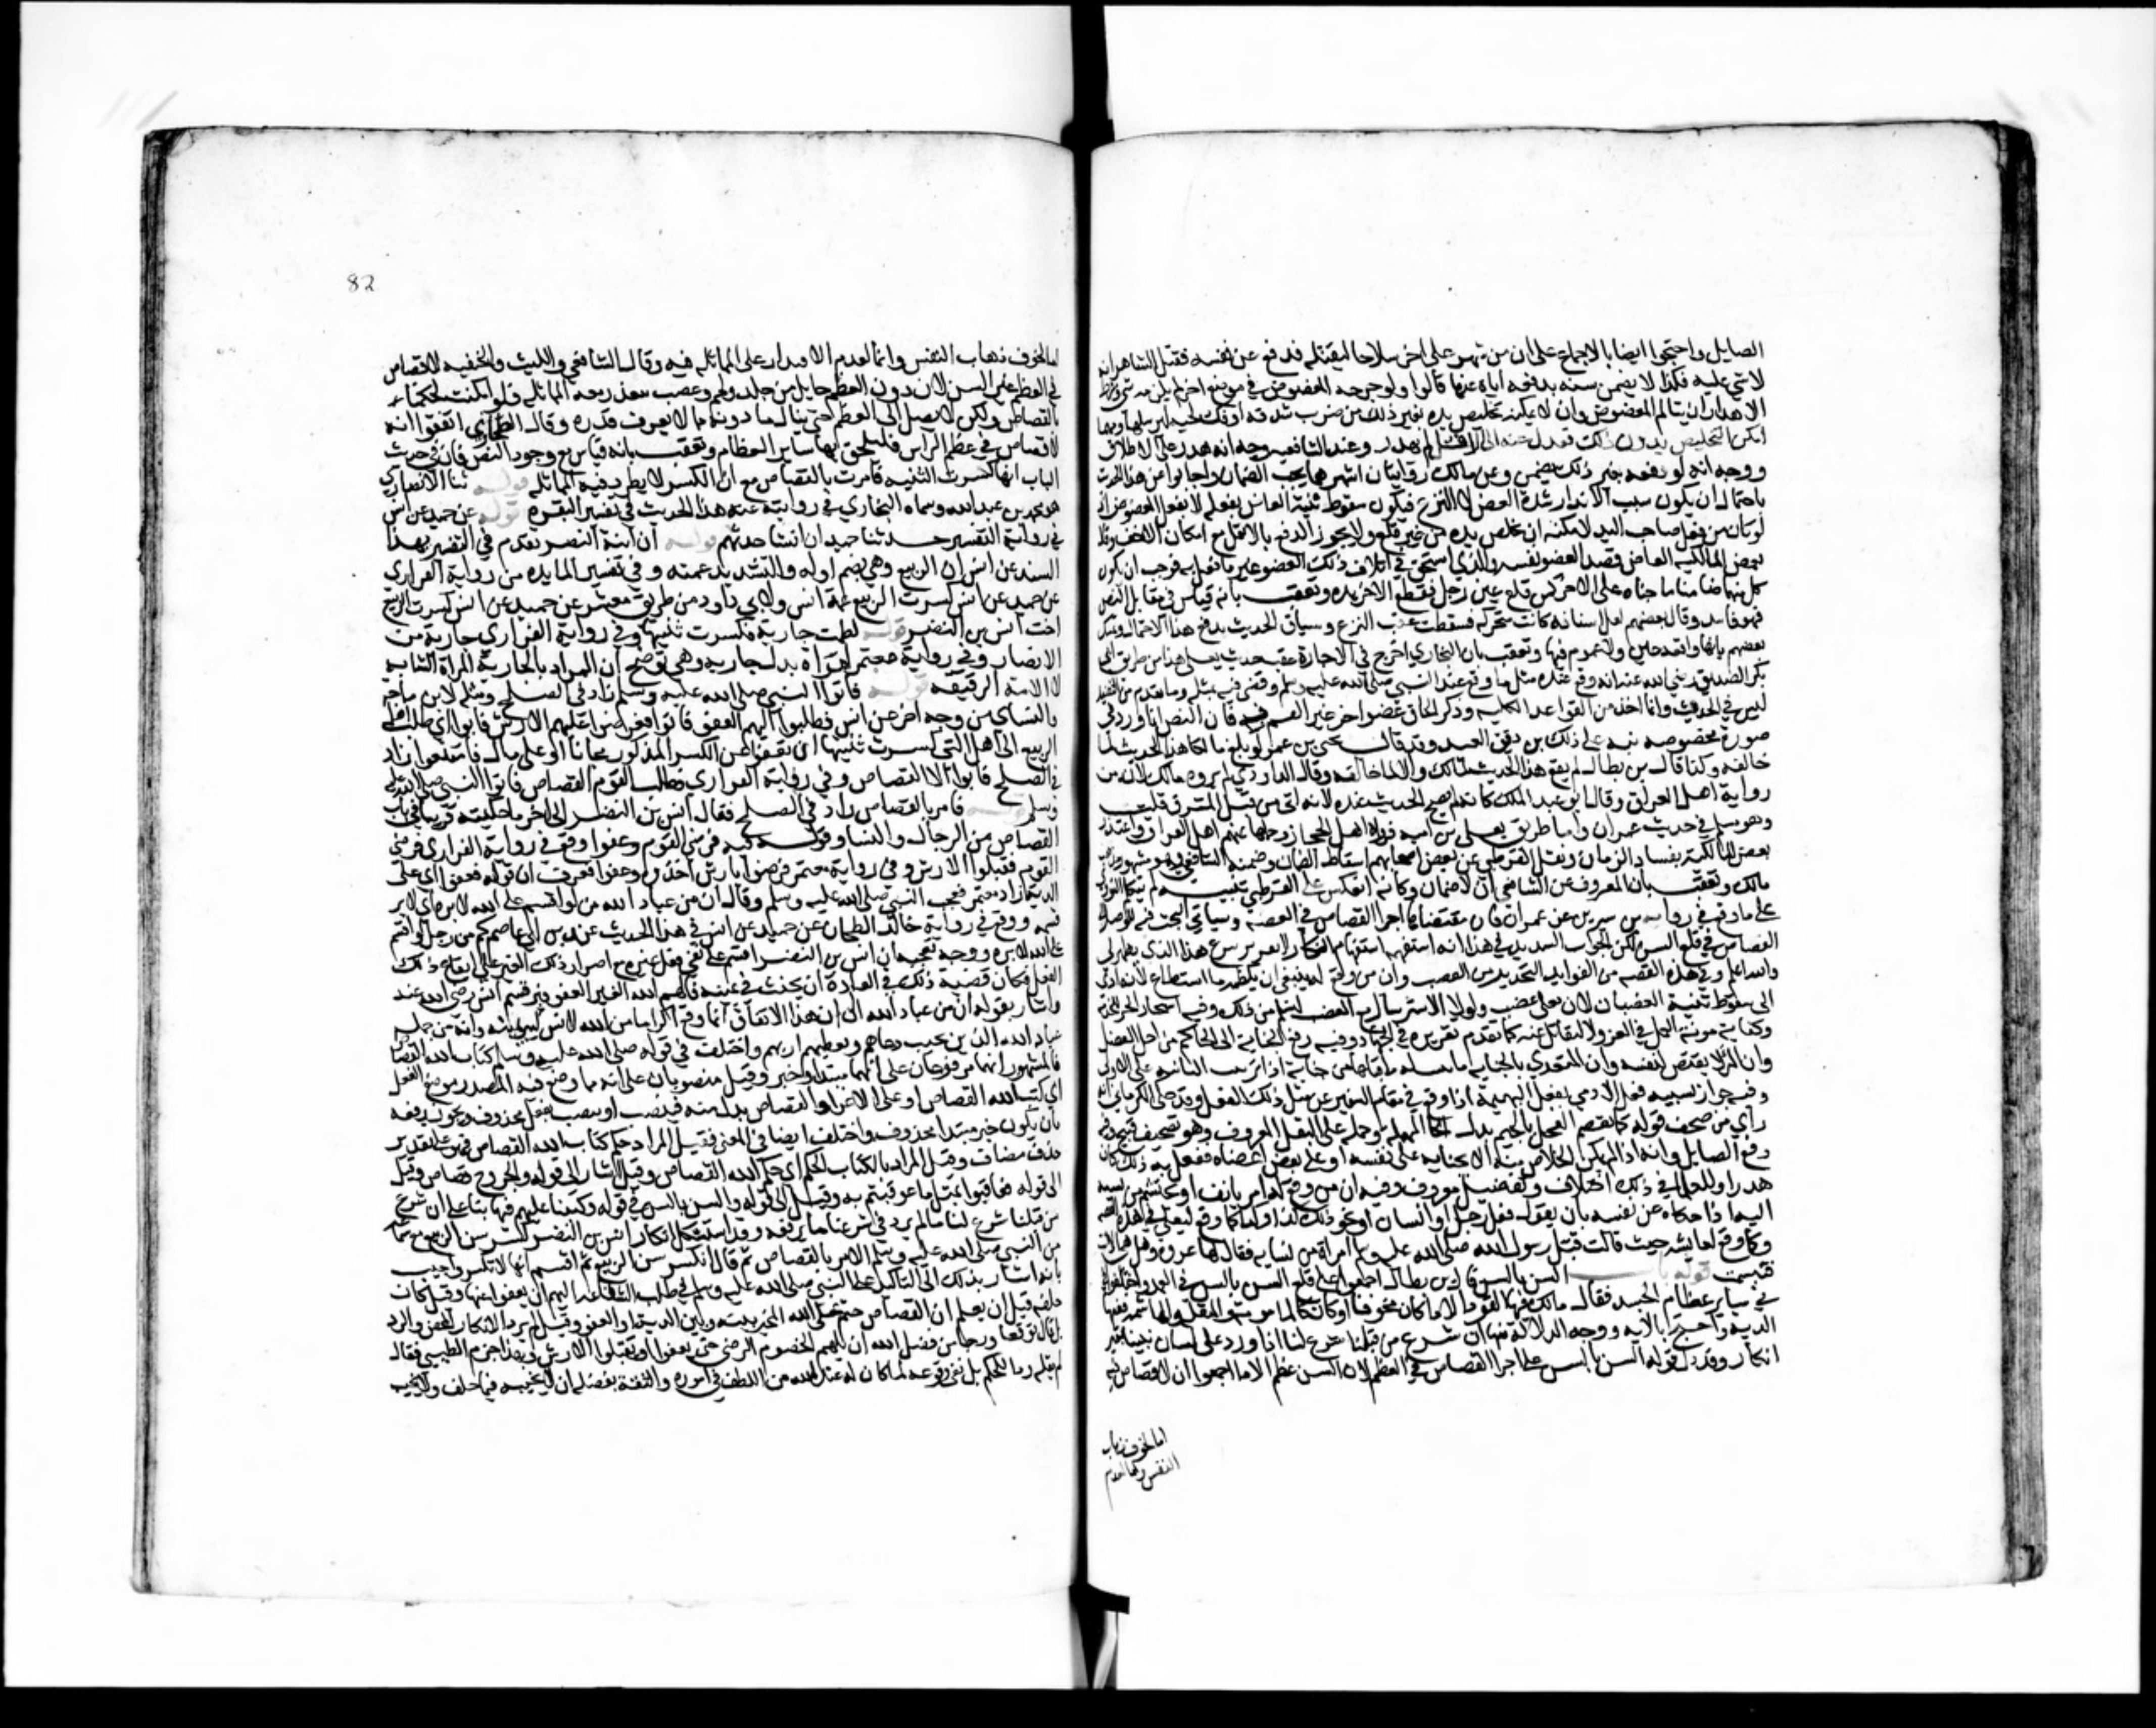 الصايل واحتجوا ايضا بالاجماع على ان من شهر على اخر سلاحا ليقتله فدفع عن نفسه فقتل الشاهر انه
لا شي عليه فكذا لا يضمن سنه بدفعه اياه عنها قالوا ولو جرحه المعضوض في موضع اخر لم يلزمه شي وشرط
الاهدار ان يتالم المعضوض وان لا يمكنه تخليص يده بغير ذلك من ضرب شدقه او فك لحيه ليرسلها ومهما
امكن التخليص بدون ذلك فعدل عنه الى الاثقل لم يهدر وعند الشافعيه وجه انه هدر على الاطلاق
ووجه انه لو دفعه بغير ذلك يضمن وعن مالك روايتان اشهرهما يجب الضمان واجابوا عن هذا الحديث
باحتمال ان يكون سبب الانذار شدة العض لا النزع فيكون سقوط ثنية العاض بفعله لا بفعل المعضوض اذ
لو كان من فعل صاحب اليد لامكنه ان يخلص يده من غير قلع ولا يجوز الدفع بالاثقل مع امكان الاخف وقال
بعض المالكيه العاض قصد العضو نفسه والذي استحق في اتلاف ذلك العضو غير ما فعل به فوجب ان يكون
كل منهما ضامنا ما جناه على الاخر كمن قلع عين رجل فقطع الاخر يده وتعقب بانه قياس في مقابل النص
فهو فاسد وقال بعضهم لعل اسنانه كانت تتحرك فسقطت عقب النزع وسياق الحديث يدفع هذا الاحتمال وتمسك
بعضهم بانها واقعة عين ولا عموم فيها وتعقب بان البخاري اخرج في الاجارة عقب حديث يعلى هذا من طريق ابي
بكر الصديق رضي الله عنه انه وقع عنده مثل ما وقع عند النبي صلى الله عليه وسلم وقضى فيه بمثله وما تقدم من التقييد
ليس في الحديث وانما اخذ من القواعد الكليه وذكر الحاق عضو اخر غير الفم به فان النص انما ورد في
صورة مخصوصه نبه على ذلك بن دقيق العيد وقد قال يحيى بن عمر لو بلغ مالكا هذا الحديث لما
خالفه وكذا قال بن بطال لم يقع هذا الحديث لمالك والا لما خالفه وقال الداودي لم يروه مالك لانه من
رواية اهل العراق وقال ابو عبد الملك كانه لم يصح الحديث عنده لانه اتى من قبل المشرق قلت
وهو مسلم في حديث عمران واما طريق يعلى بن اميه فرواها اهل الحجاز وحملها عنهم اهل العراق واعتذر
بعض المالكية بفساد الزمان ونقل القرطبي عن بعض اصحابهم اسقاط الضمان وضمنه الشافعي وهو مشهور مذهب
مالك وتعقب بان المعروف عن الشافعي ان لا ضمان وكانه انعكس على القرطبي تنبيه لم يتكلم النووي
على ما وقع في رواية بن سيرين عن عمران فان مقتضاها اجرا القصاص في العضه وسياتي البحث فيه
القصاص في قلع السن لكن الجواب السديد في هذا انه استفهمه استفهام انكار لا تقرير شرع هذا الذي يظهر لي
والله اعلم وفي هذه القصه من الفوايد التحذير من الغضب وان من وقع له ينبغي ان يكظمه ما استطاع لانه ادى
الى سقوط ثنية الغضبان لان يعلى غضب ولولا الاسترسال مع الغضب لسلم من ذلك وفيه استيجار الحر للخدمة
وكفاية مونة العمل في الغزو لا ليقاتل عنه كما تقدم تقريره في الجهاد وفيه رفع الجناية الى الحاكم من اجل الفصل
وان المرء لا يقتص لنفسه وان المتعدي بالجناية يسقط ما ثبت له قبلها من جناية اذا ترتبت الثانيه على الاولى
وفيه جواز تشبيه فعل الادمي بفعل البهيمة اذا وقع في مقام التنفير عن مثل ذلك الفعل وقد حكى الكرماني انه
راى من صحف قوله كما يقضم الفحل بالجيم بدل الحا المهملة وحمله على البقل المعروف وهو تصحيف قبيح وفيه
دفع الصايل وانه اذا لم يمكن الخلاص منه الا بجناية على نفسه او على بعض اعضائه ففعل به ذلك كان
هدرا وللعلما في ذلك اختلاف وتفصيل معروف وفيه ان من وقع له امر يانف او يحتشم من نسبته
اليه اذا حكاه عن نفسه بان يقول فعل رجل او انسان او نحو ذلك كذا وكذا كما وقع ليعلى في هذه القصه
وكما وقع لعايشه حيث قالت قبل رسول الله صلى الله عليه وسلم امراة من نسايه فقال لها عروة وهل هي الا انت
فتبسمت قوله باب السن بالسن قال بن بطال اجمعوا على قلع السن بالسن في العمد واختلفوا
في ساير عظام الجسد فقال مالك فيها القود الا ما كان مخوفا او كان كالمامومة والمنقلة والهاشمة ففيها
الدية واحتج بالاية ووجه الدلالة منها ان شرع من قبلنا شرع لنا اذا ورد على لسان نبينا بغير
انكار وقد دل قوله السن بالسن على اجرا القصاص في العظم لان السن عظم الا ما اجمعوا ان لا قصاص فيه
اما لخوف ذهاب
النفس واما لعدم
82
اما لخوف ذهاب النفس واما لعدم الاقتدار على المماثلة فيه وقال الشافعي والليث والحنفيه لا قصاص
في العظم غير السن لان دون العظم حايل من جلد ولحم وعصب يتعذر معه المماثلة فلو امكنت لحكمنا
بالقصاص ولكن لا يصل الى العظم حتى ينال ما دونه مما لا يعرف قدره وقال الطحاوي اتفقوا انه
لا قصاص في عظم الراس فليلحق بها ساير العظام وتعقب بانه قياس مع وجود النص فان في حديث
الباب انها كسرت الثنيه فامرت بالقصاص مع ان الكسر لا يطرد فيه المماثلة قوله ثنا الانصاري
هو محمد بن عبد الله وسماه البخاري في روايته عنه هذا الحديث في تفسير البقره قوله عن حميد عن انس
في رواية التفسير حدثنا حميد ان انسا حدثهم قوله ان ابنة النضر تقدم في التفسير بهذا
السند عن انس ان الربيع وهي بضم اوله والتشديد عمته وفي تفسير المايده من رواية الفزاري
عن حميد عن انس كسرت الربيع عمة انس ولابي داود من طريق معتمر عن حميد عن انس كسرت الربيع
اخت انس بن النضر قوله لطمت جارية فكسرت ثنيتها وفي رواية الفزاري جارية من
الانصار وفي رواية معتمر امراة بدل جارية وهي توضح ان المراد بالجارية المراة الشابة
لا الامة الرقيقه قوله فاتوا النبي صلى الله عليه وسلم زاد في الصلح ومثله لابن ماجه
والنساي من وجه اخر عن انس فطلبوا اليهم العفو فابوا فعرضوا عليهم الارش فابوا اي طلب اهل
الربيع الى اهل التي كسرت ثنيتها ان يعفوا عن الكسر المذكور مجانا او على مال فامتنعوا زاد
في الصلح فابوا الا القصاص وفي رواية الفزاري فطلب القوم القصاص فاتوا النبي صلى الله عليه
وسلم قوله فامر بالقصاص زاد في الصلح فقال انس بن النضر الى اخر ما حكيته قريبا في باب
القصاص من الرجال والنسا وقوله فيه فرضي القوم وعفوا وقع في رواية الفزاري فرضي
القوم فقبلوا الارش وفي رواية معتمر فرضوا بارش اخذوه وعفوا فعرف ان قوله فعفوا اي على
الدية زاد معتمر فعجب النبي صلى الله عليه وسلم وقال ان من عباد الله من لو اقسم على الله لابره اي لابر
قسمه ووقع في رواية خالد الطحان عن حميد عن انس في هذا الحديث عند بن ابي عاصم كم من رجل لو اقسم
على الله لابره ووجه تعجبه ان انس بن النضر اقسم على نفي فعل غيره مع اصرار ذلك الغير على ايقاع ذلك
الفعل فكان قضية ذلك في العادة ان يحنث في يمينه فالهم الله الغير العفو فبر قسم انس رضي الله عنه
واشار بقوله ان من عباد الله الى ان هذا الاتفاق انما وقع اكراما من الله لانس ليبر يمينه وانه من جملة
عباد الله الذين يجيب دعاهم ويعطيهم اربهم واختلف في قوله صلى الله عليه وسلم كتاب الله القصاص
فالمشهور انهما مرفوعان على انهما مبتدا وخبر وقيل منصوبان على انه مما وضع فيه المصدر موضع الفعل
اي كتب الله القصاص او على الاغراء والقصاص بدل منه فينصب او ينصب بفعل محذوف ويجوز رفعه
بان يكون خبر مبتدا محذوف واختلف ايضا في المعنى فقيل المراد حكم كتاب الله القصاص فهو على تقدير
حذف مضاف وقيل المراد بالكتاب الحكم اي حكم الله القصاص وقيل اشار الى قوله والجروح قصاص وقيل
الى قوله فعاقبوا بمثل ما عوقبتم به وقيل الى قوله والسن بالسن في قوله وكتبنا عليهم فيها بناء على ان شرع
من قبلنا شرع لنا ما لم يرد في شرعنا ما يرفعه وقد استشكل انكار انس بن النضر كسر سن الربيع مع سماعه
من النبي صلى الله عليه وسلم الامر بالقصاص ثم قال اتكسر سن الربيع ثم اقسم انها لا تكسر واجيب
بانه اشار بذلك الى التاكيد على النبي صلى الله عليه وسلم في طلب الشفاعه اليهم ان يعفوا عنها وقيل كان
حلفه قبل ان يعلم ان القصاص حتم فظن انه مخير بينه وبين الدية او العفو وقيل لم يرد الانكار المحض والرد
بل قاله توقعا ورجا من فضل الله ان يلهم الخصوم الرضى حتى يعفوا او يقبلوا الارش وبهذا جزم الطيبي فقال
لم يقله ردا للحكم بل نفى وقوعه لما كان له عند الله من اللطف في اموره والثقة بفضله ان لا يخيبه فيما حلف ولا يخيب